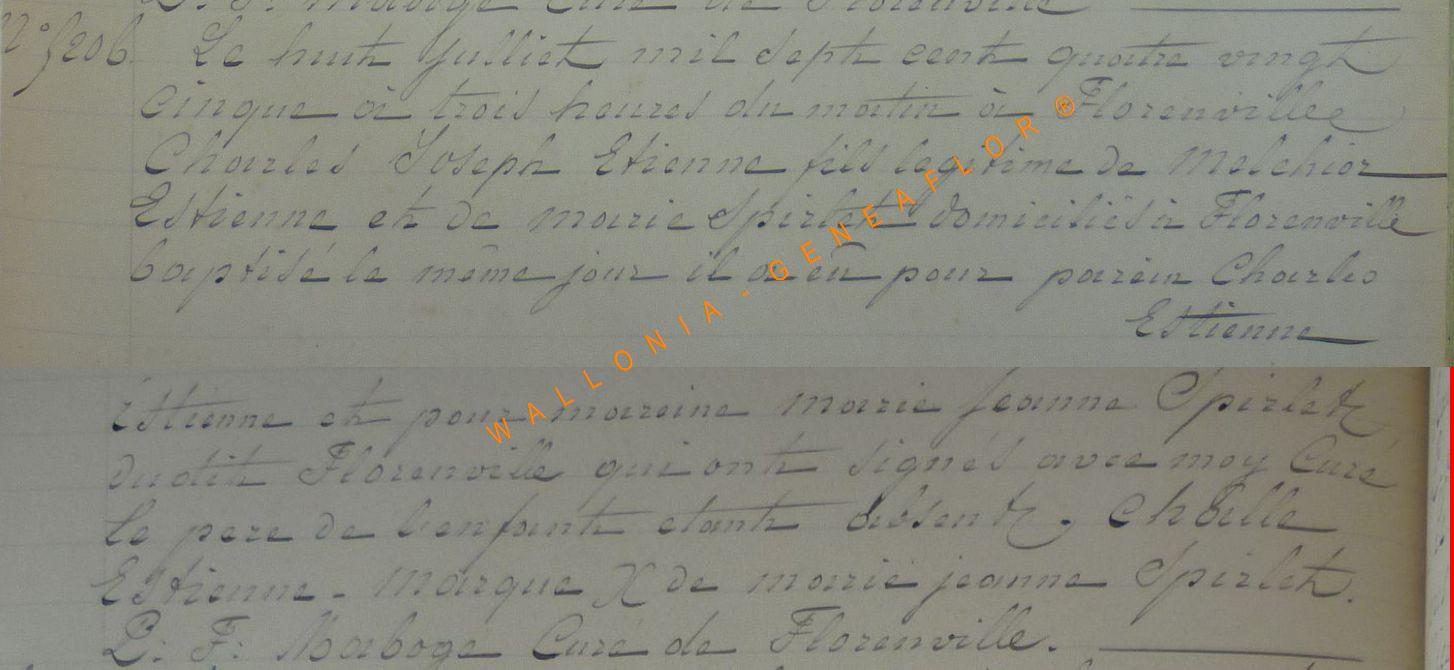 D. F. Maboge Curé de Florenville
N° 3206. Le huit Julliet mil sept cent quatre vingt
cinque à trois heures du matin à Florenville
Charles Joseph Etienne fils legitime de Melchior
Estienne et de marie Spirlet domiciliés à Florenville
baptisé le même jour il a eü pour parein Charles
Estienne
Estienne et pour mareine marie jeanne Spirlet
dudit Florenville qui ont signés avec moy Curé
le pere de l'enfant etant absent. Ch
Estienne - Marque X de marie jeanne Spirlet.
D: F: Maboge Curé de Florenville.
WALLONIA - GENEAFLOR ®